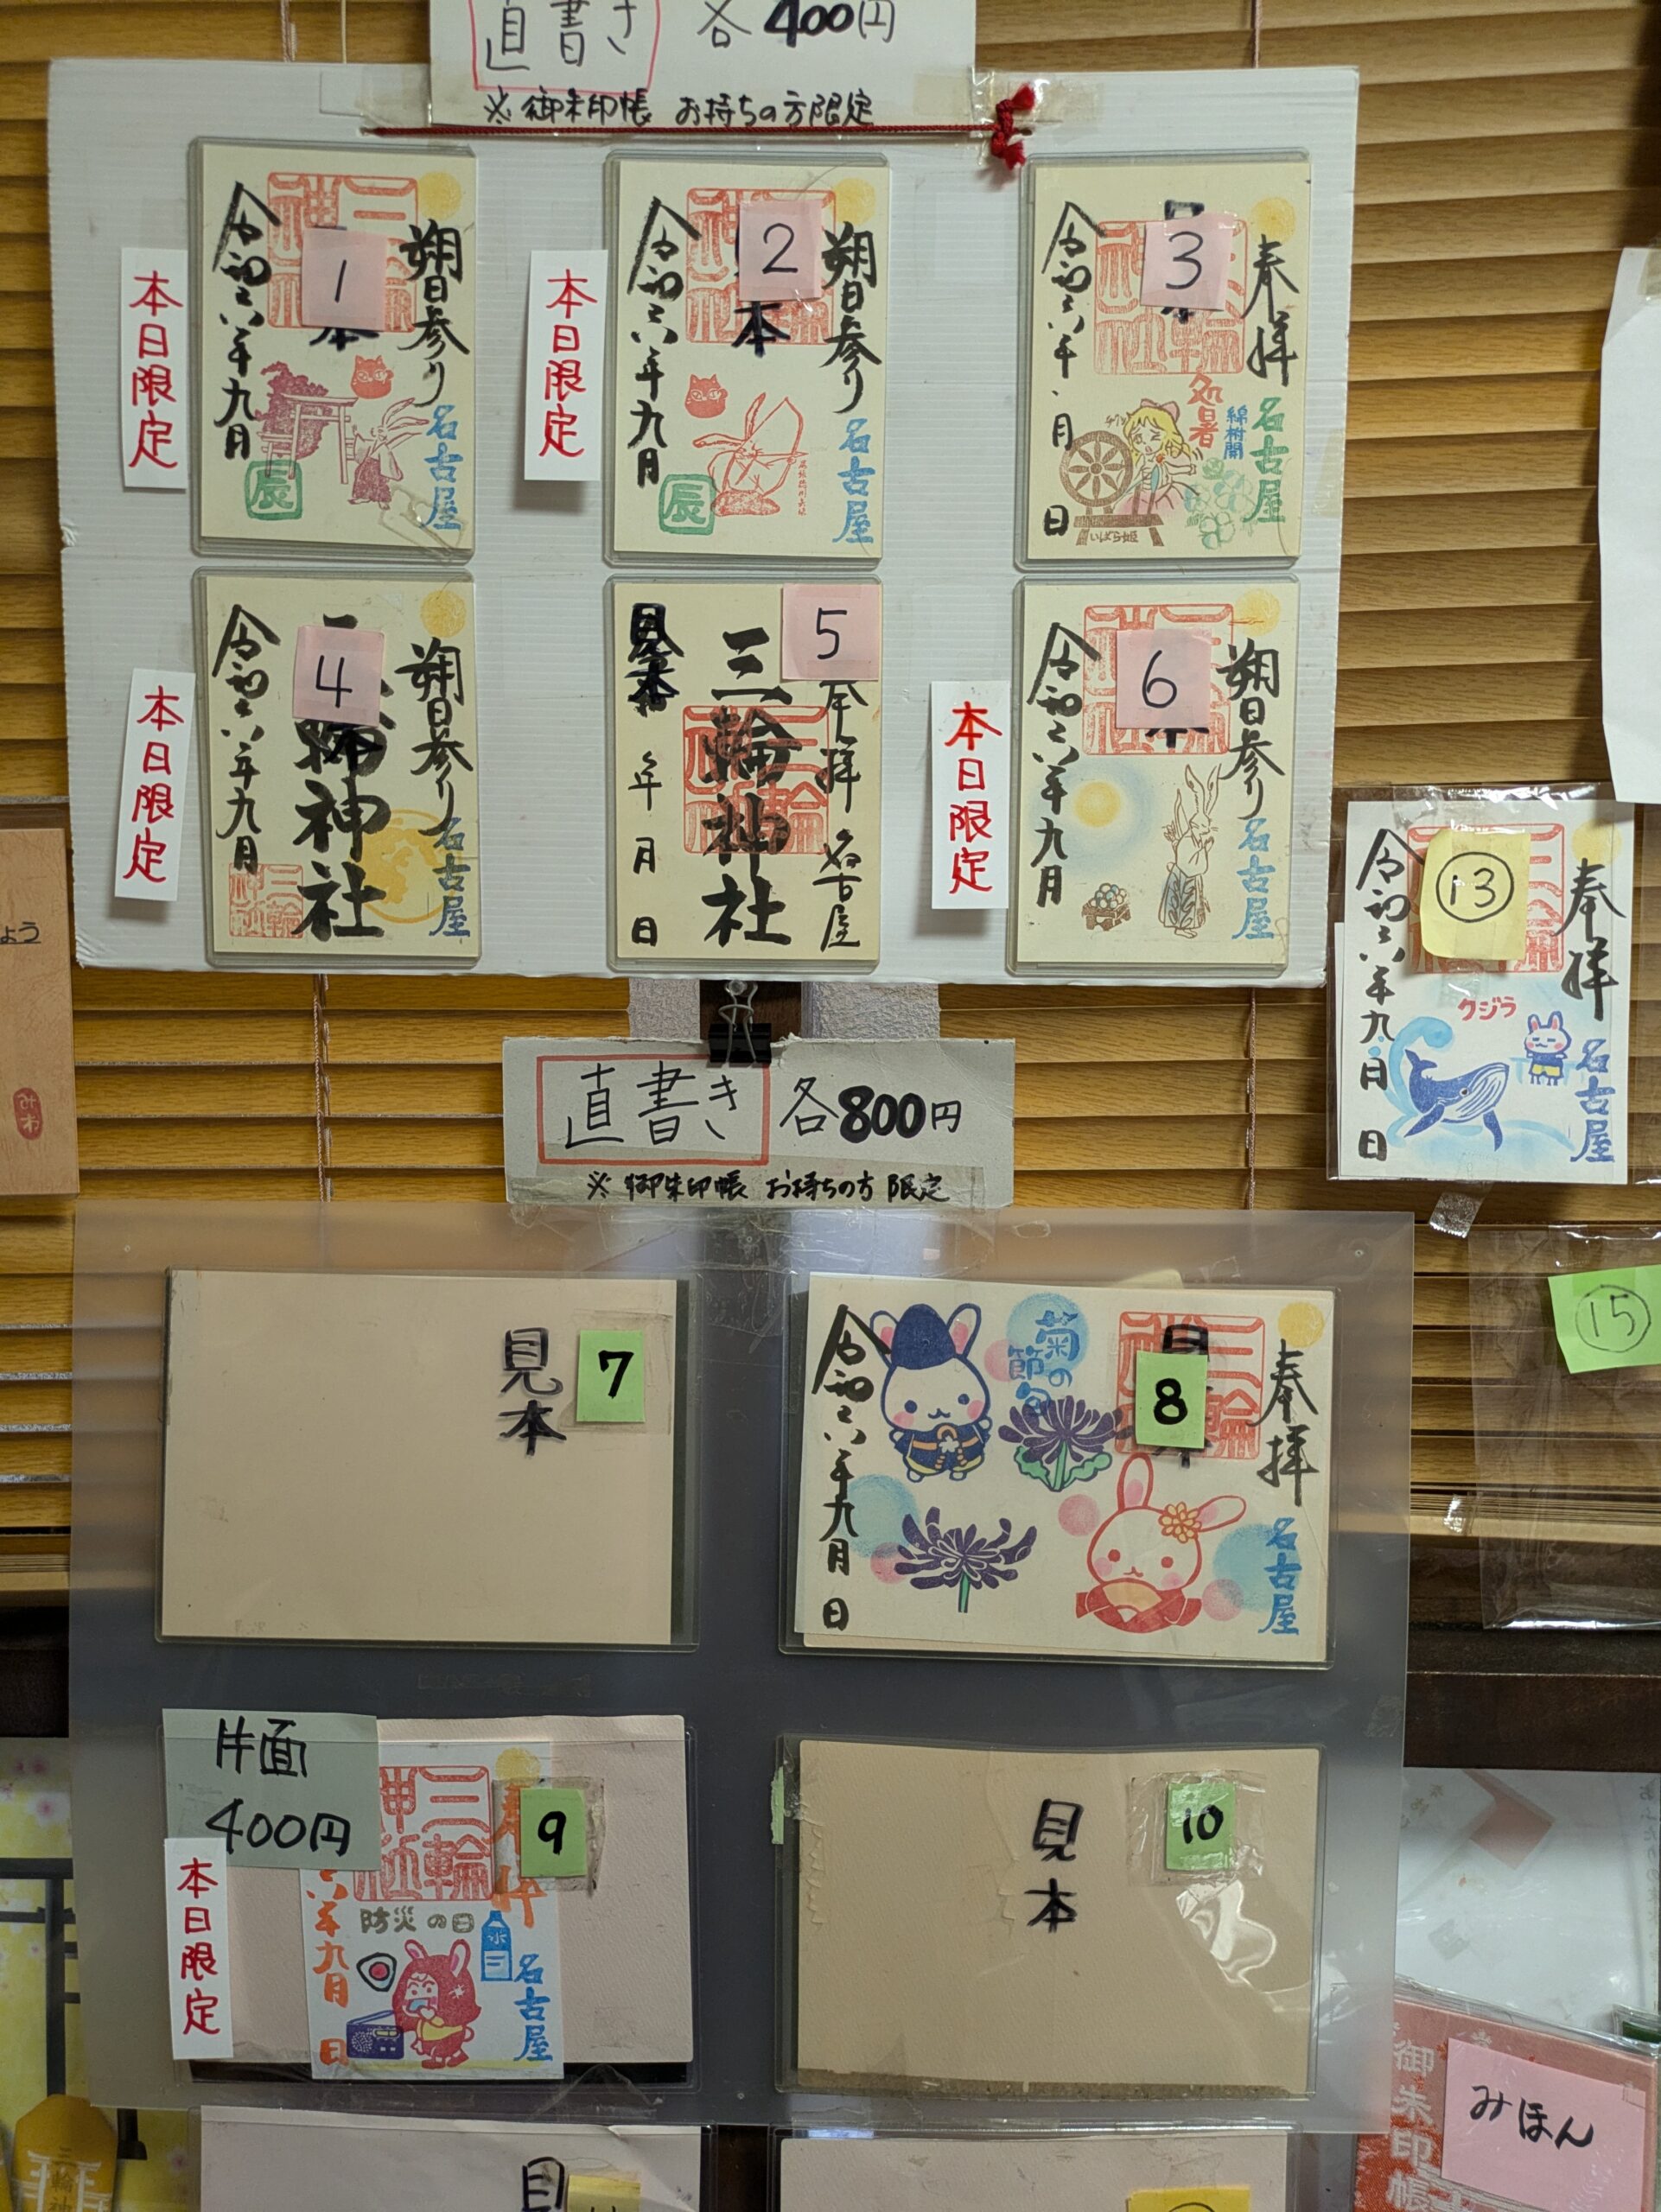 直書き 各400円
※御朱印帳 お持ちの方限定
本日限定
1
朔日参り
名古屋
令和六年九月
辰
本日限定
2
本
朔日参り
名古屋
令和六年九月
辰
3
奉拝
名古屋
処暑
綿柎開
いばら姫
令和六年 月 日
本日限定
4
朔日参り
名古屋
神社
令和六年九月
5
奉拝 名古屋
三輪神社
見本
年 月 日
本日限定
6
朔日参り
名古屋
令和六年九月
13
奉拝
名古屋
クジラ
令和六年九月 日
直書き 各800円
※御朱印帳 お持ちの方限定
7
見本
8
奉拝
名古屋
菊の節句
三輪
令和六年九月 日
15
片面
400円
本日限定
9
三輪神社
防災の日
水
名古屋
六年九月 日
10
見本
みほん
御朱印帳
三輪神
みわ
よう